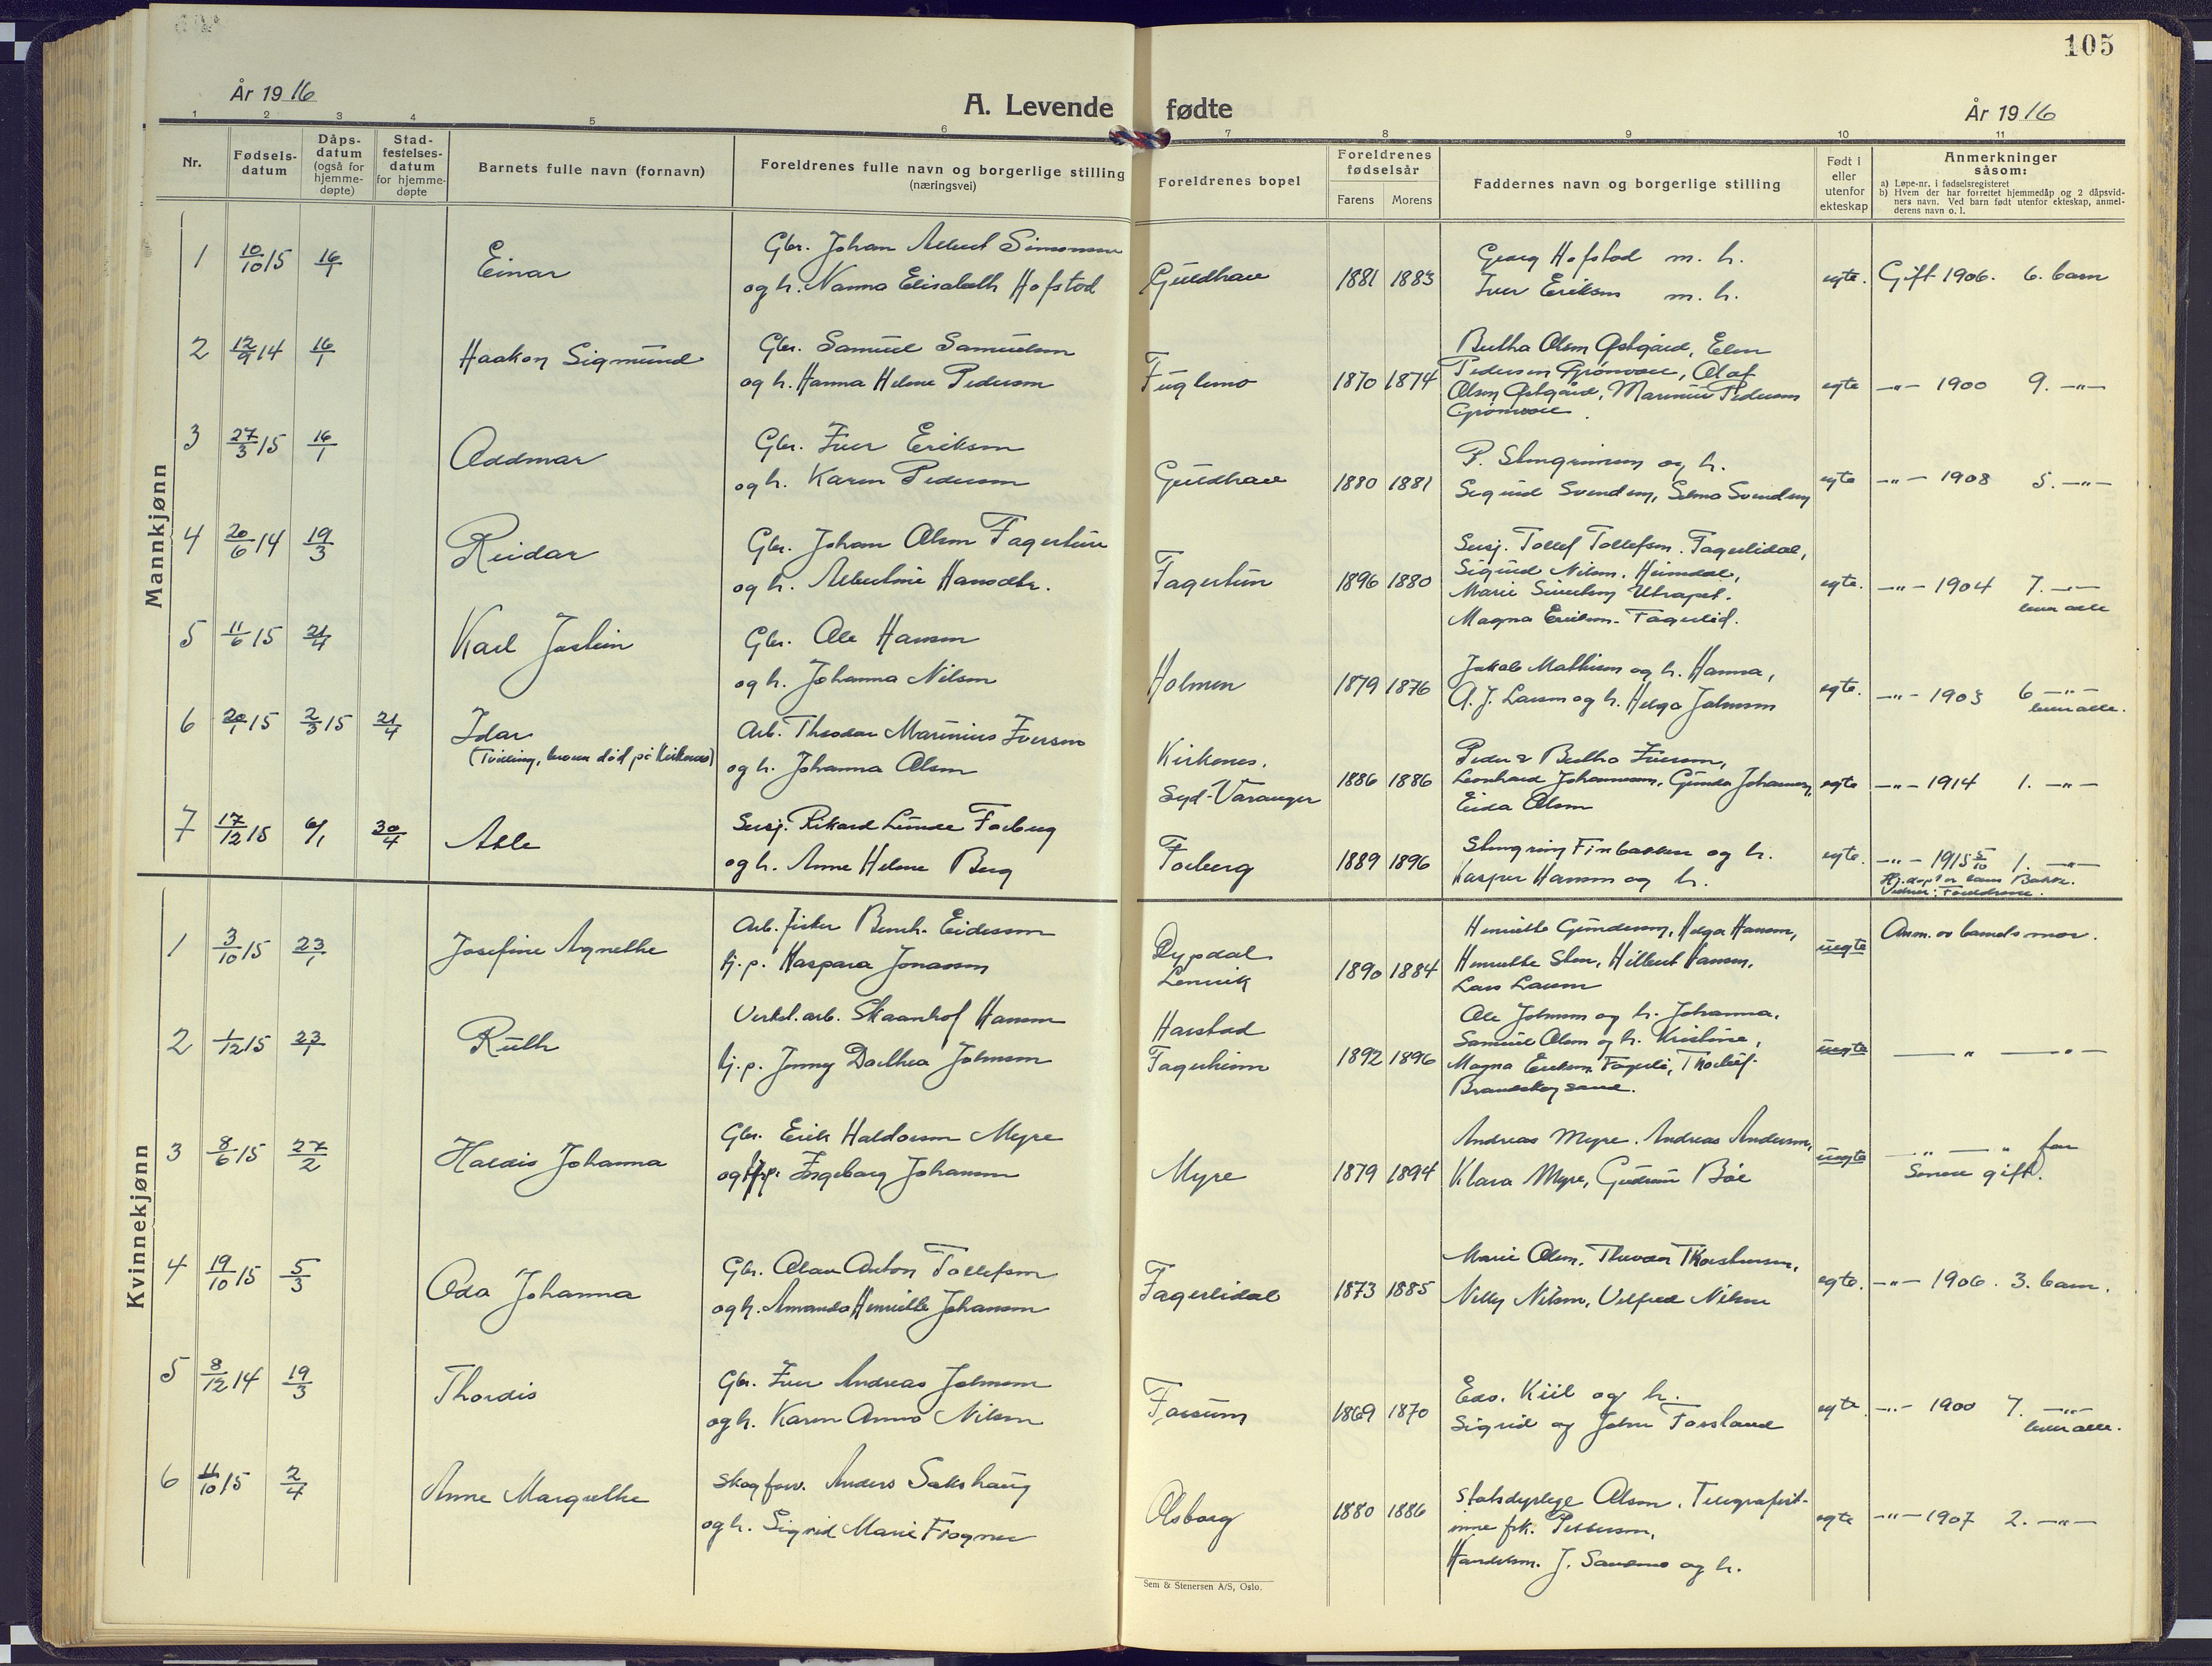 105
År 1916
A. Levende fødte
År 1916
1 2 3 4 5 6 7 8 9 10 11
Nr.
Fødsels-datum
Dåps-datum (også for hjemme-døpte)
Stad-festelses-datum for hjemme-døpte
Barnets fulle navn (fornavn)
Foreldrenes fulle navn og borgerlige stilling (næringsvei)
Foreldrenes bopel
Foreldrenes fødselsår
Farens Morens
Faddernes navn og borgerlige stilling
Født i eller utenfor ekteskap
Anmerkninger såsom:
a) Løpe-nr. i fødselsregisteret
b) Hvem der har forrettet hjemmedåp og 2 dåpsvid-
ners navn. Ved barn født utenfor ekteskap, anmel-
derens navn o. l.
Mannkjønn
1 10/10 15 16/1 Einar
Gbr. Johan Albert Simonsen
og h. Nanna Elisabeth Hofstad
Guldhav 1881 1883
Georg Hofstad m. h.
Iver Eriksen m. h.
egte. Gift 1906. 6. barn
2 12/9 14 16/1 Haakon Sigmund
Gbr. Samuel Samuelsen
og h. Hanna Helene Pedersen
Fuglemo 1870 1874
Bertha Olsen Østgård, Elen
Pedersen Grønvoll, Olaf
Olsen Østgård, Marinius Pedersen
Grønvoll
egte -"- 1900 9. -"-
3 27/3 15 16/1 Oddmar
Gbr. Iver Eriksen
og h. Karen Pedersen
Guldhav 1880 1881
P. Stengrimsen og h.
Sigurd Svendsen, Selma Svendsen
egte -"- 1908 5. -"-
4 20/6 14 19/3 Reidar
Gbr. Johan Olsen Fagertun
og h. Albertine Hansdtr.
Fagertun 1896 1880
Susj. Tollef Tollefsen. Fagerlidal,
Sigurd Nilsen. Heimdal,
Marie Sivertsen
Magna Eriksen. Fagerlid.
egte. -"- 1904 7. -"-
lever alle
5 11/6 15 21/4 Karl Jostein
Gbr. Ole Hansen
og h. Johanna Nilsen
Holmen 1879 1876
Jakob Mathisen og h. Hanna,
A. J. Larsen og h. Helga Johnsen
egte. -"- 1903 6 -"-
lever alle.
6 20/1 15 2/3 15 21/4 Idar
(Tvilling, broren død på Kirkenes)
Arb. Theodor Marinius Iversen
og h. Johanna Olsen
Kirkenes.
Syd-Varanger 1886 1886
Peder & Bertha Iversen,
Leonhard Johannesen, Gunda Johansen,
Eida Olsen
egte -"- 1914 1. -"-
7 17/12 15 6/1 30/4 Atle
Susj. Rikard Lunde Forberg
og h. Anne Helene Berg
Forberg 1889 1896
Stengrim Finbakken og h.
Kasper Hansen og h.
egte. -"- 1915 5/10 1. -"-
Hj.døpt av lens Bakke.
Vidner: Foreldrene.
Kvinnekjønn
1 3/10 15 23/1 Josefine Agnethe
Arb. fisker Bernh. Eidesen
tj.p. Kaspara Jonassen
Dypdal
Lenvik 1890 1884
Henriette Gundersen, Helga Hansen,
Henriette Sten, Hilbert Hansen,
Lars Larsen
uegte Anm. av barnets mor.
2 1/12 15 23/1 Ruth
Verkst.arb. Skaanhof Hansen
tj.p. Jenny Dorthea Johnsen
Harstad
Fagerheim 1892 1896
Ole Johnsen og h. Johanna,
Samuel Olsen og h. Kristine,
Magna Eriksen Fagerli, Thorleif
Brandskogsand.
uegte — " — " —
3 8/6 15 27/2 Haldis Johanna
Gbr. Erik Haldorsen Myre
og tj.p. Ingeborg Johansen
Myre 1879 1894
Andreas Myre. Andreas Andersen,
Klara Myre, Gudrun Bøe
uegte — " — " far
Senere gift.
4 19/10 15 5/3 Oda Johanna
Gbr. Olav Anton Tollefsen
og h. Amanda Henriette Johansen
Fagerlidal 1873 1885
Marie Olsen. Theodor Thorstensen,
Nelly Nilsen, Velfred Nilsen
egte. -"- 1906. 3. barn.
5 8/12 14 19/3 Thordis
Gbr. Iver Andreas Johnsen
og h. Karen Anna Nilsen
Forsum 1869 1870
Edv. Kiil og h.
Sigrid og John Forsland
egte -"- 1900 7. -"-
lever alle.
6 11/10 15 2/4 Anne Margrethe
Skogforv. Anders Sakshaug
og h. Sigrid Marie Frogner
Olsborg 1880 1886
Statsdyrlege Olsen, Telegrafist-
inne frk. Pettersen,
Handelsm. J. Sandmo og h.
egte -"- 1907 2. -"-
Sem & Stenersen A/S, Oslo.